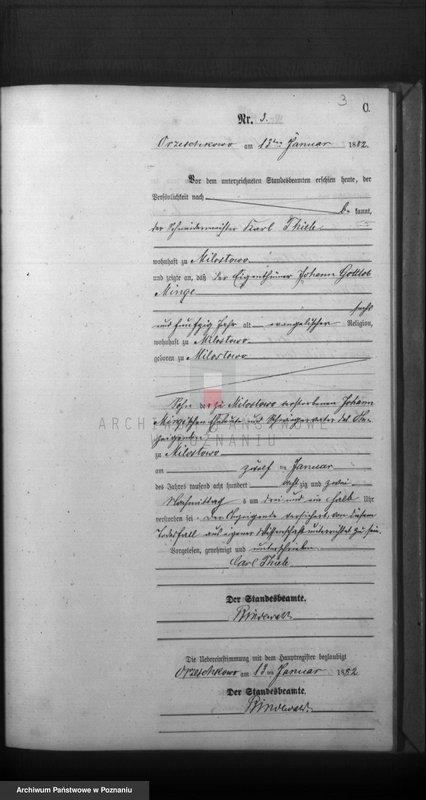 3
O.
Nr. 3.
Orzeschkowo am 13ten Januar 1882.
Vor dem unterzeichneten Standesbeamten erschien heute, der
Persönlichkeit nach
be kannt,
der Schneidermeister Karl Thiele
wohnhaft zu Milostowo
und zeigte an, daß der Eigenthümer Johann Gottlob
Minge
sechs
und fünfzig Jahr alt evangelischer Religion,
wohnhaft zu Milostowo
geboren zu Milostowo
Sohn der zu Milostowo verstorbenen Johann
Minge'schen Eheleute und Schwiegervater des An-
zeigenden
ARCHIWUM PAŃSTWOWE
W POZNANIU
zu Milostowo
am zwölf ten Januar
des Jahres tausend acht hundert acht zig und zwei
Nachmittag s um drei und ein halb Uhr
verstorben sei. Der Anzeigende versichert, von diesem
Todesfall aus eigener Wissenschaft unterrichtet zu sein.
Vorgelesen, genehmigt und unterschrieben
Carl Thiele
Der Standesbeamte.
Die Uebereinstimmung mit dem Hauptregister beglaubigt
Orzeschkowo am 13 ten Januar 1882
Der Standesbeamte.
Archiwum Państwowe w Poznaniu